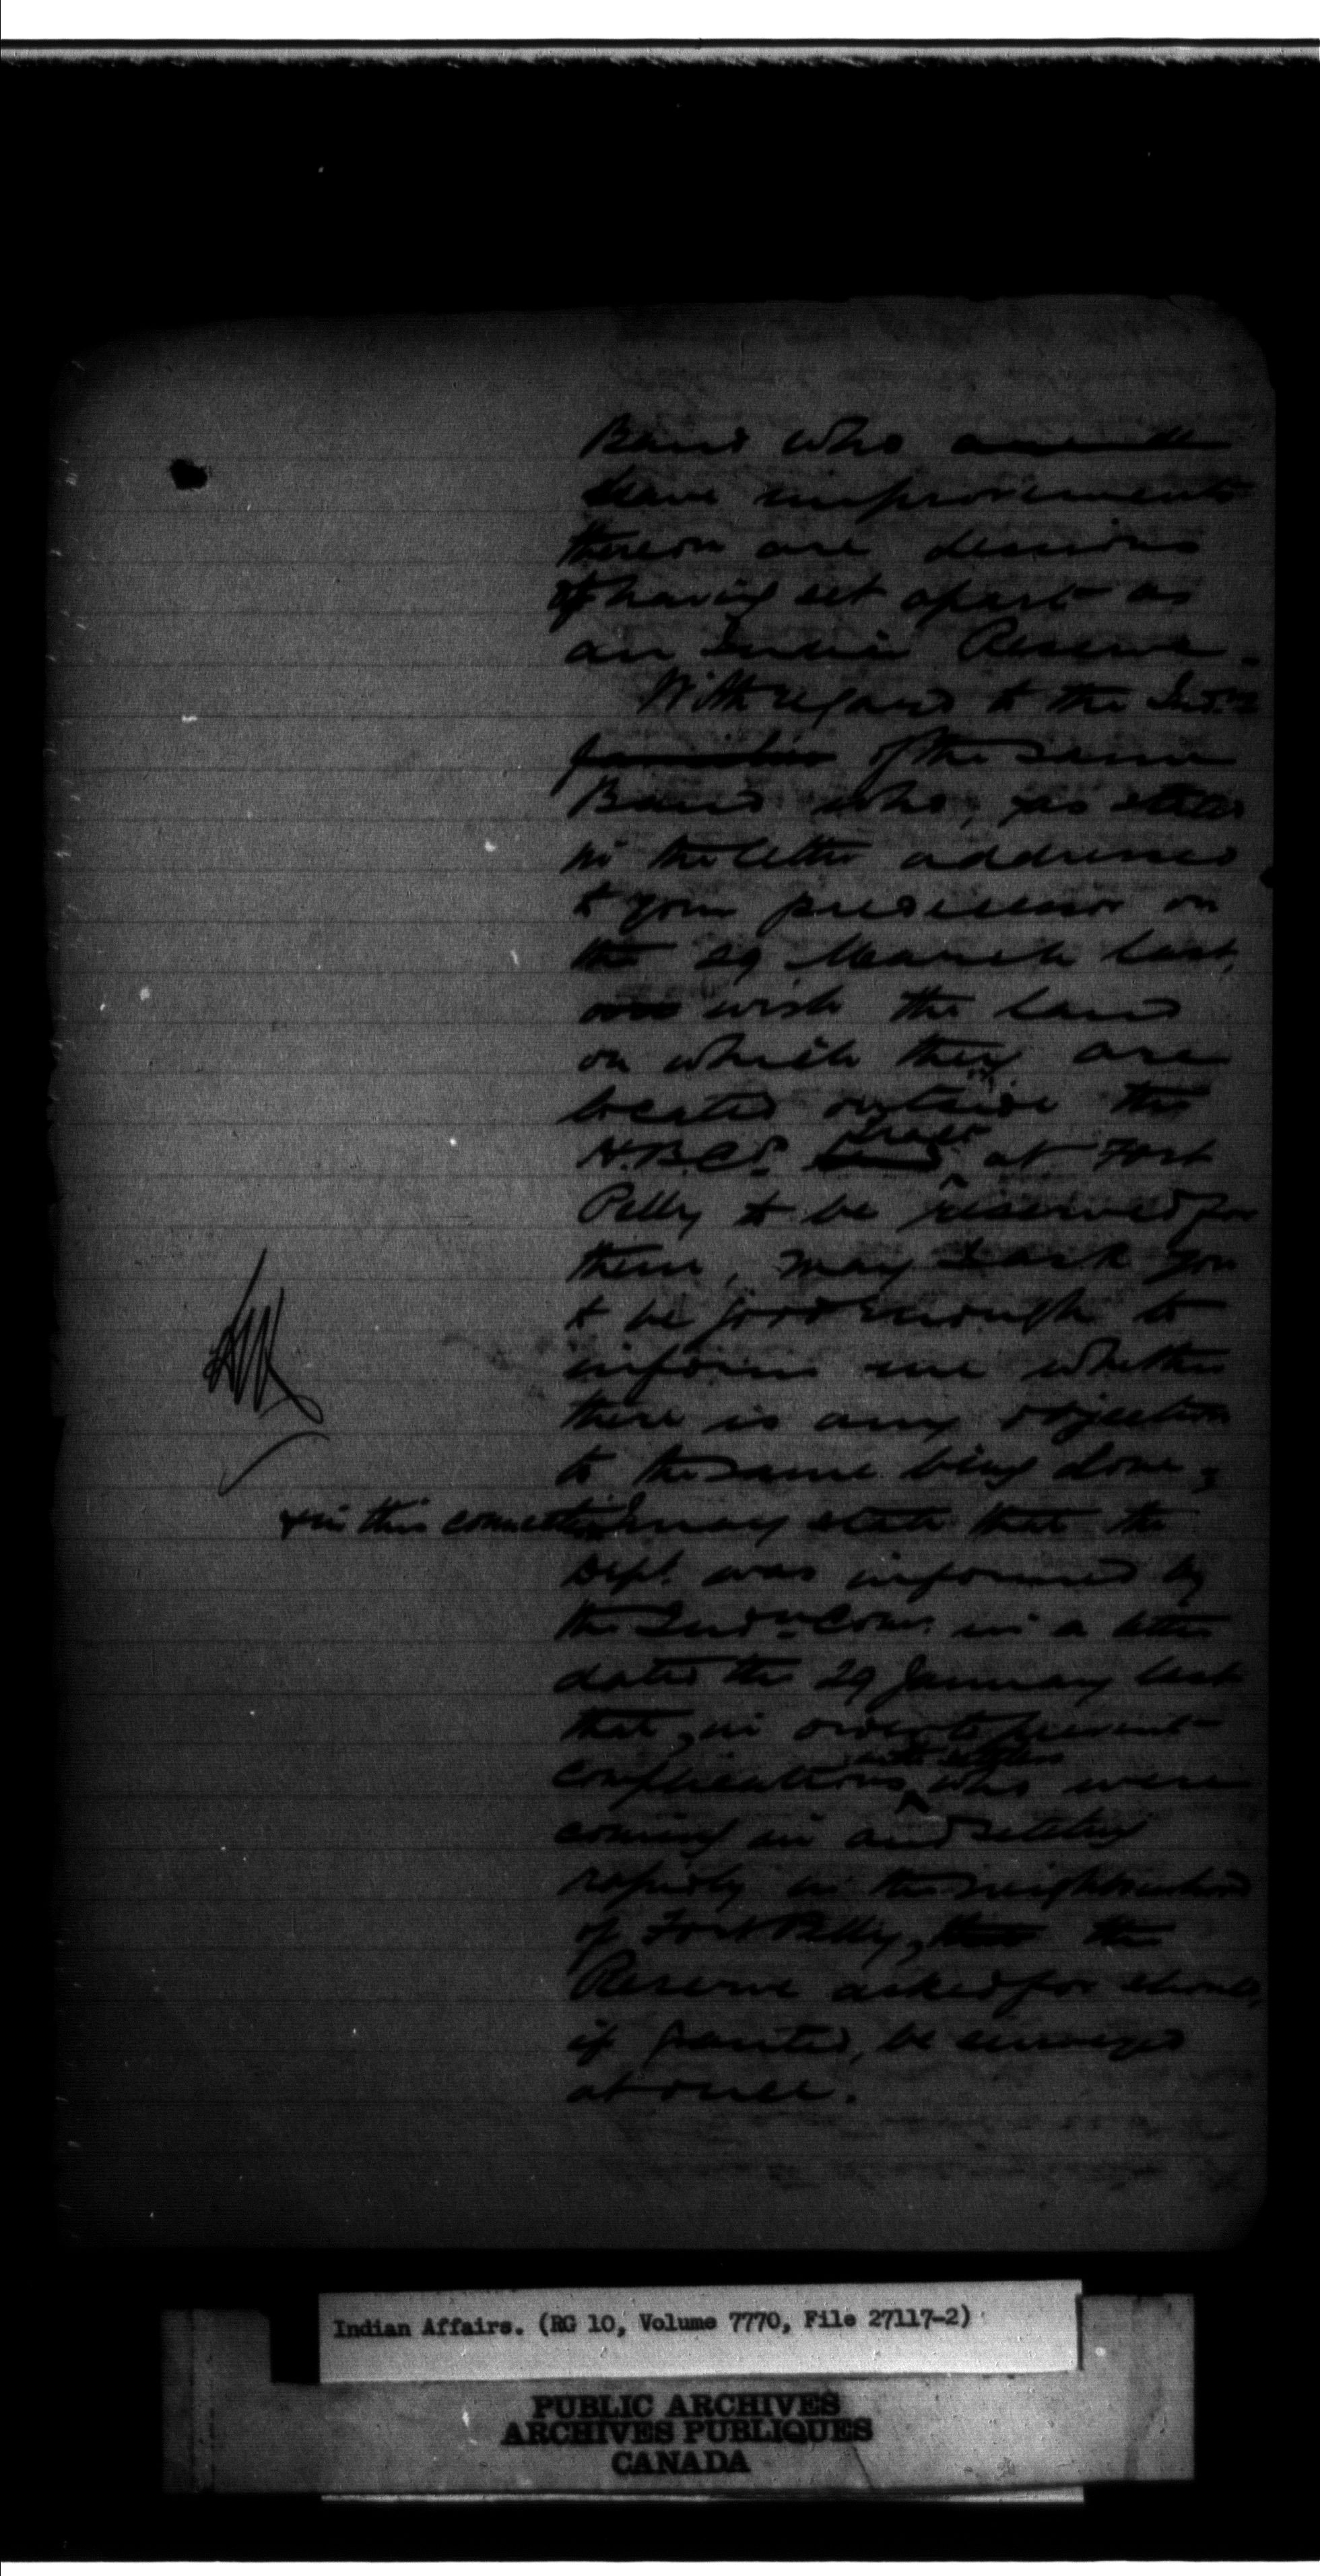 Band who
have improvements
thereon are desirous
of having set apart as
an Indian Reserve.
With regard to the Indns
families of the same
Band who, as stated
in the letter addressed
to your predecessor on
the 29 March last,
wish the land
on which they are
located outside the
H.B.Co's tract at Fort
Pelly to be reserved for
them, may I ask you
to be good enough to
inform me whether
there is any objection
to the same being done,
& in this connection I may state that the
Dept. was informed by
the Indn Comr. in a letter
dated the 29 January last
that, in order to prevent
complications with settlers who were
coming in and settling
rapidly in the neighbourhood
of Fort Pelly, that the
Reserve asked for should,
if granted, be surveyed
at once.
Indian Affairs. (RG 10, Volume 7770, File 27117-2)
PUBLIC ARCHIVES
ARCHIVES PUBLIQUES
CANADA